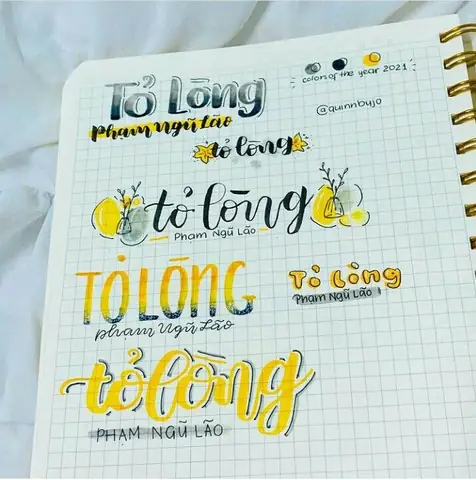 Tỏ Lòng
Phạm Ngũ Lão
colors of the year 2021
@quinnbujo
tỏ lòng
tỏ lòng
Phạm Ngũ Lão
TỎ LÒNG
Phạm Ngũ Lão
Tỏ Lòng
Phạm Ngũ Lão
tỏ lòng
PHẠM NGŨ LÃO